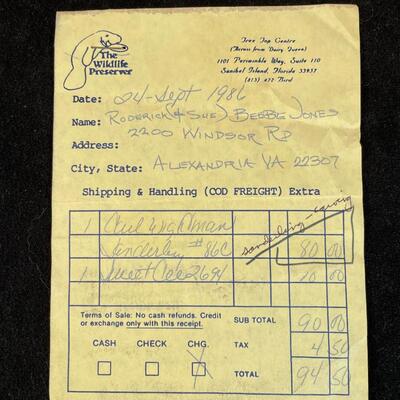 The
Wildlife
Preserver
Tree Top Centre
(Across from Dairy Queen)
1101 Periwinkle Way, Suite 110
Sanibel Island, Florida 33957
(813) 472-Bird
Date: 24-Sept 1986
Name: RODERICK (& SUE) BEEBE JONES
2200 WINDSOR RD
Address:
City, State: ALEXANDRIA VA 22307
Shipping & Handling (COD FREIGHT) Extra
sanderling - carving
1
#86C 80 00
1 10 00
Terms of Sale: No cash refunds. Credit
or exchange only with this receipt.
SUB TOTAL 90 00
CASH CHECK CHG.
TAX 4 50
X
TOTAL 94 50